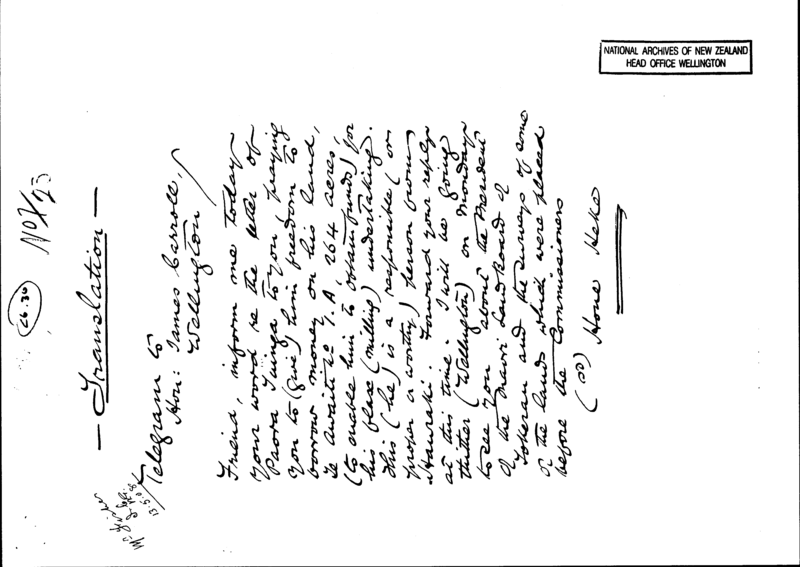 NATIONAL ARCHIVES OF NEW ZEALAND
HEAD OFFICE WELLINGTON
— Translation —
Telegram to
Hon: James Carroll,
Wellington
Friend, inform me today
your word re the letter of
Paora Tuinga to you praying
you to (give) him freedom to
borrow money on his land,
Te Awaiti 264 acres,
(to enable him to obtain funds) for
his flax (milling) undertaking.
This (he) is a responsible (or
proper or worthy) person from
Hauraki. Forward your reply
at this time. I will be going
thither (Wellington) on Monday
to see you about the President
of the Maori Land Board of
Tokerau and the surveys of some
of the lands which were placed
before the Commissioners
Hone Heke